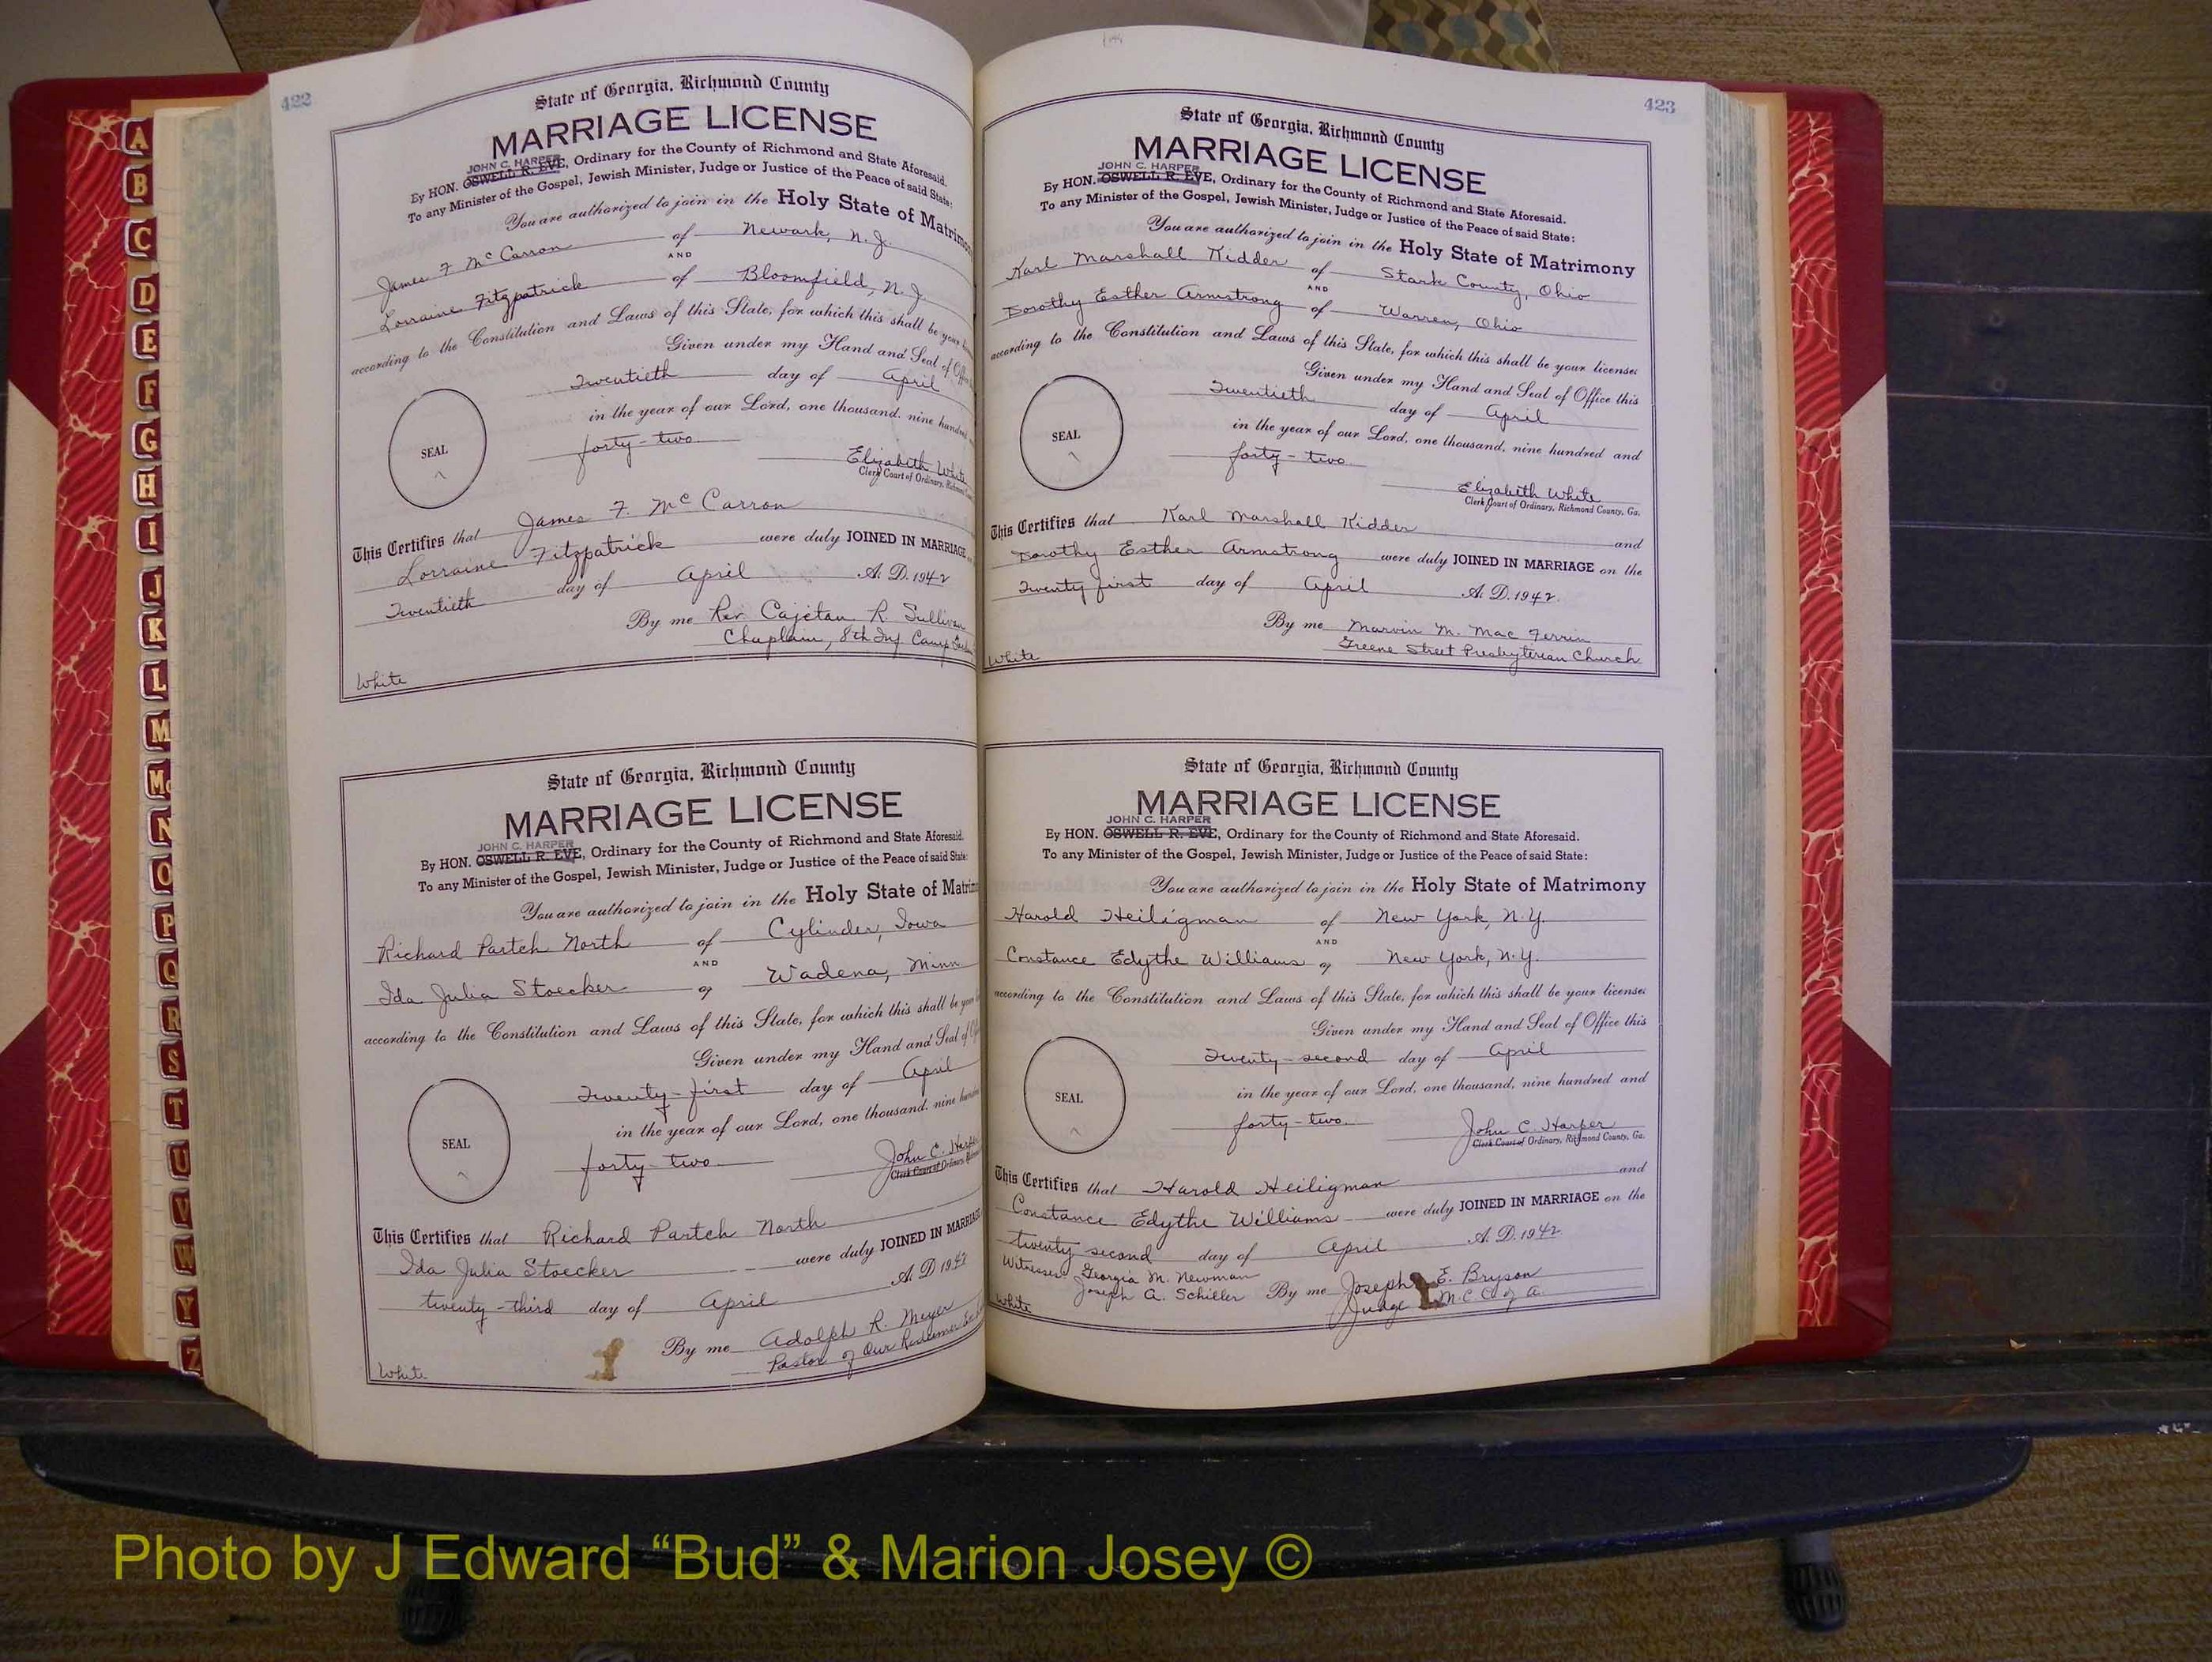 A
B
C
D
E
F
G
H
I
J
K
L
M
Mc
N
O
P
Q
R
S
T
U
V
W
Y
Z
422
State of Georgia, Richmond County
MARRIAGE LICENSE
JOHN C. HARPER
By HON. OSWELL R. EVE, Ordinary for the County of Richmond and State Aforesaid.
To any Minister of the Gospel, Jewish Minister, Judge or Justice of the Peace of said State:
You are authorized to join in the Holy State of Matrimony
James F. McCarron of Newark, N.J.
AND
Lorraine Fitzpatrick of Bloomfield, N.J.
according to the Constitution and Laws of this State, for which this shall be your
Given under my Hand and Seal of
Twentieth day of April
in the year of our Lord, one thousand, nine hundred
SEAL
forty-two
Elizabeth White
Clerk Court of Ordinary,
This Certifies that James F. McCarron
Lorraine Fitzpatrick were duly JOINED IN MARRIAGE
Twentieth day of April A. D. 1942
By me Rev. Cajetan R. Sullivan
Chaplain, 8th Inf Camp
White
State of Georgia, Richmond County
MARRIAGE LICENSE
JOHN C. HARPER
By HON. OSWELL R. EVE, Ordinary for the County of Richmond and State Aforesaid.
To any Minister of the Gospel, Jewish Minister, Judge or Justice of the Peace of said State:
You are authorized to join in the Holy State of
Richard Partch North of Cylinder, Iowa
AND
Ida Julia Stoecker of Wadena, Minn
according to the Constitution and Laws of this State, for which this shall be your
Given under my Hand and Seal of
Twenty-first day of April
in the year of our Lord, one thousand, nine
SEAL
forty-two
John C. Harper
Clerk Court of Ordinary,
This Certifies that Richard Partch North
Ida Julia Stoecker were duly JOINED IN MARRIAGE
twenty-third day of April A. D. 1942
By me Adolph R. Meyer
Pastor of Our Redeemer
White
423
State of Georgia, Richmond County
MARRIAGE LICENSE
JOHN C. HARPER
By HON. OSWELL R. EVE, Ordinary for the County of Richmond and State Aforesaid.
To any Minister of the Gospel, Jewish Minister, Judge or Justice of the Peace of said State:
You are authorized to join in the Holy State of Matrimony
Karl Marshall Kidder of Stark County, Ohio
AND
Dorothy Esther Armstrong of Warren, Ohio
according to the Constitution and Laws of this State, for which this shall be your license:
Given under my Hand and Seal of Office this
Twentieth day of April
in the year of our Lord, one thousand, nine hundred and
SEAL
forty-two
Elizabeth White
Clerk Court of Ordinary, Richmond County, Ga.
This Certifies that Karl Marshall Kidder and
Dorothy Esther Armstrong were duly JOINED IN MARRIAGE on the
Twenty first day of April A. D. 1942.
By me Marvin M. Mac Ferrin
Greene Street Presbyterian Church
White
State of Georgia, Richmond County
MARRIAGE LICENSE
JOHN C. HARPER
By HON. OSWELL R. EVE, Ordinary for the County of Richmond and State Aforesaid.
To any Minister of the Gospel, Jewish Minister, Judge or Justice of the Peace of said State:
You are authorized to join in the Holy State of Matrimony
Harold Heiligman of New York, N.Y.
AND
Constance Edythe Williams of New York, N.Y.
according to the Constitution and Laws of this State, for which this shall be your license:
Given under my Hand and Seal of Office this
Twenty-second day of April
in the year of our Lord, one thousand, nine hundred and
SEAL
forty-two
John C. Harper
Clerk Court of Ordinary, Richmond County, Ga.
This Certifies that Harold Heiligman and
Constance Edythe Williams were duly JOINED IN MARRIAGE on the
twenty second day of April A. D. 1942
Witnesses Georgia M. Newman
Joseph A. Schiller By me Joseph E. Bryson
Judge M.C.C. of A.
White
Photo by J Edward “Bud” & Marion Josey ©